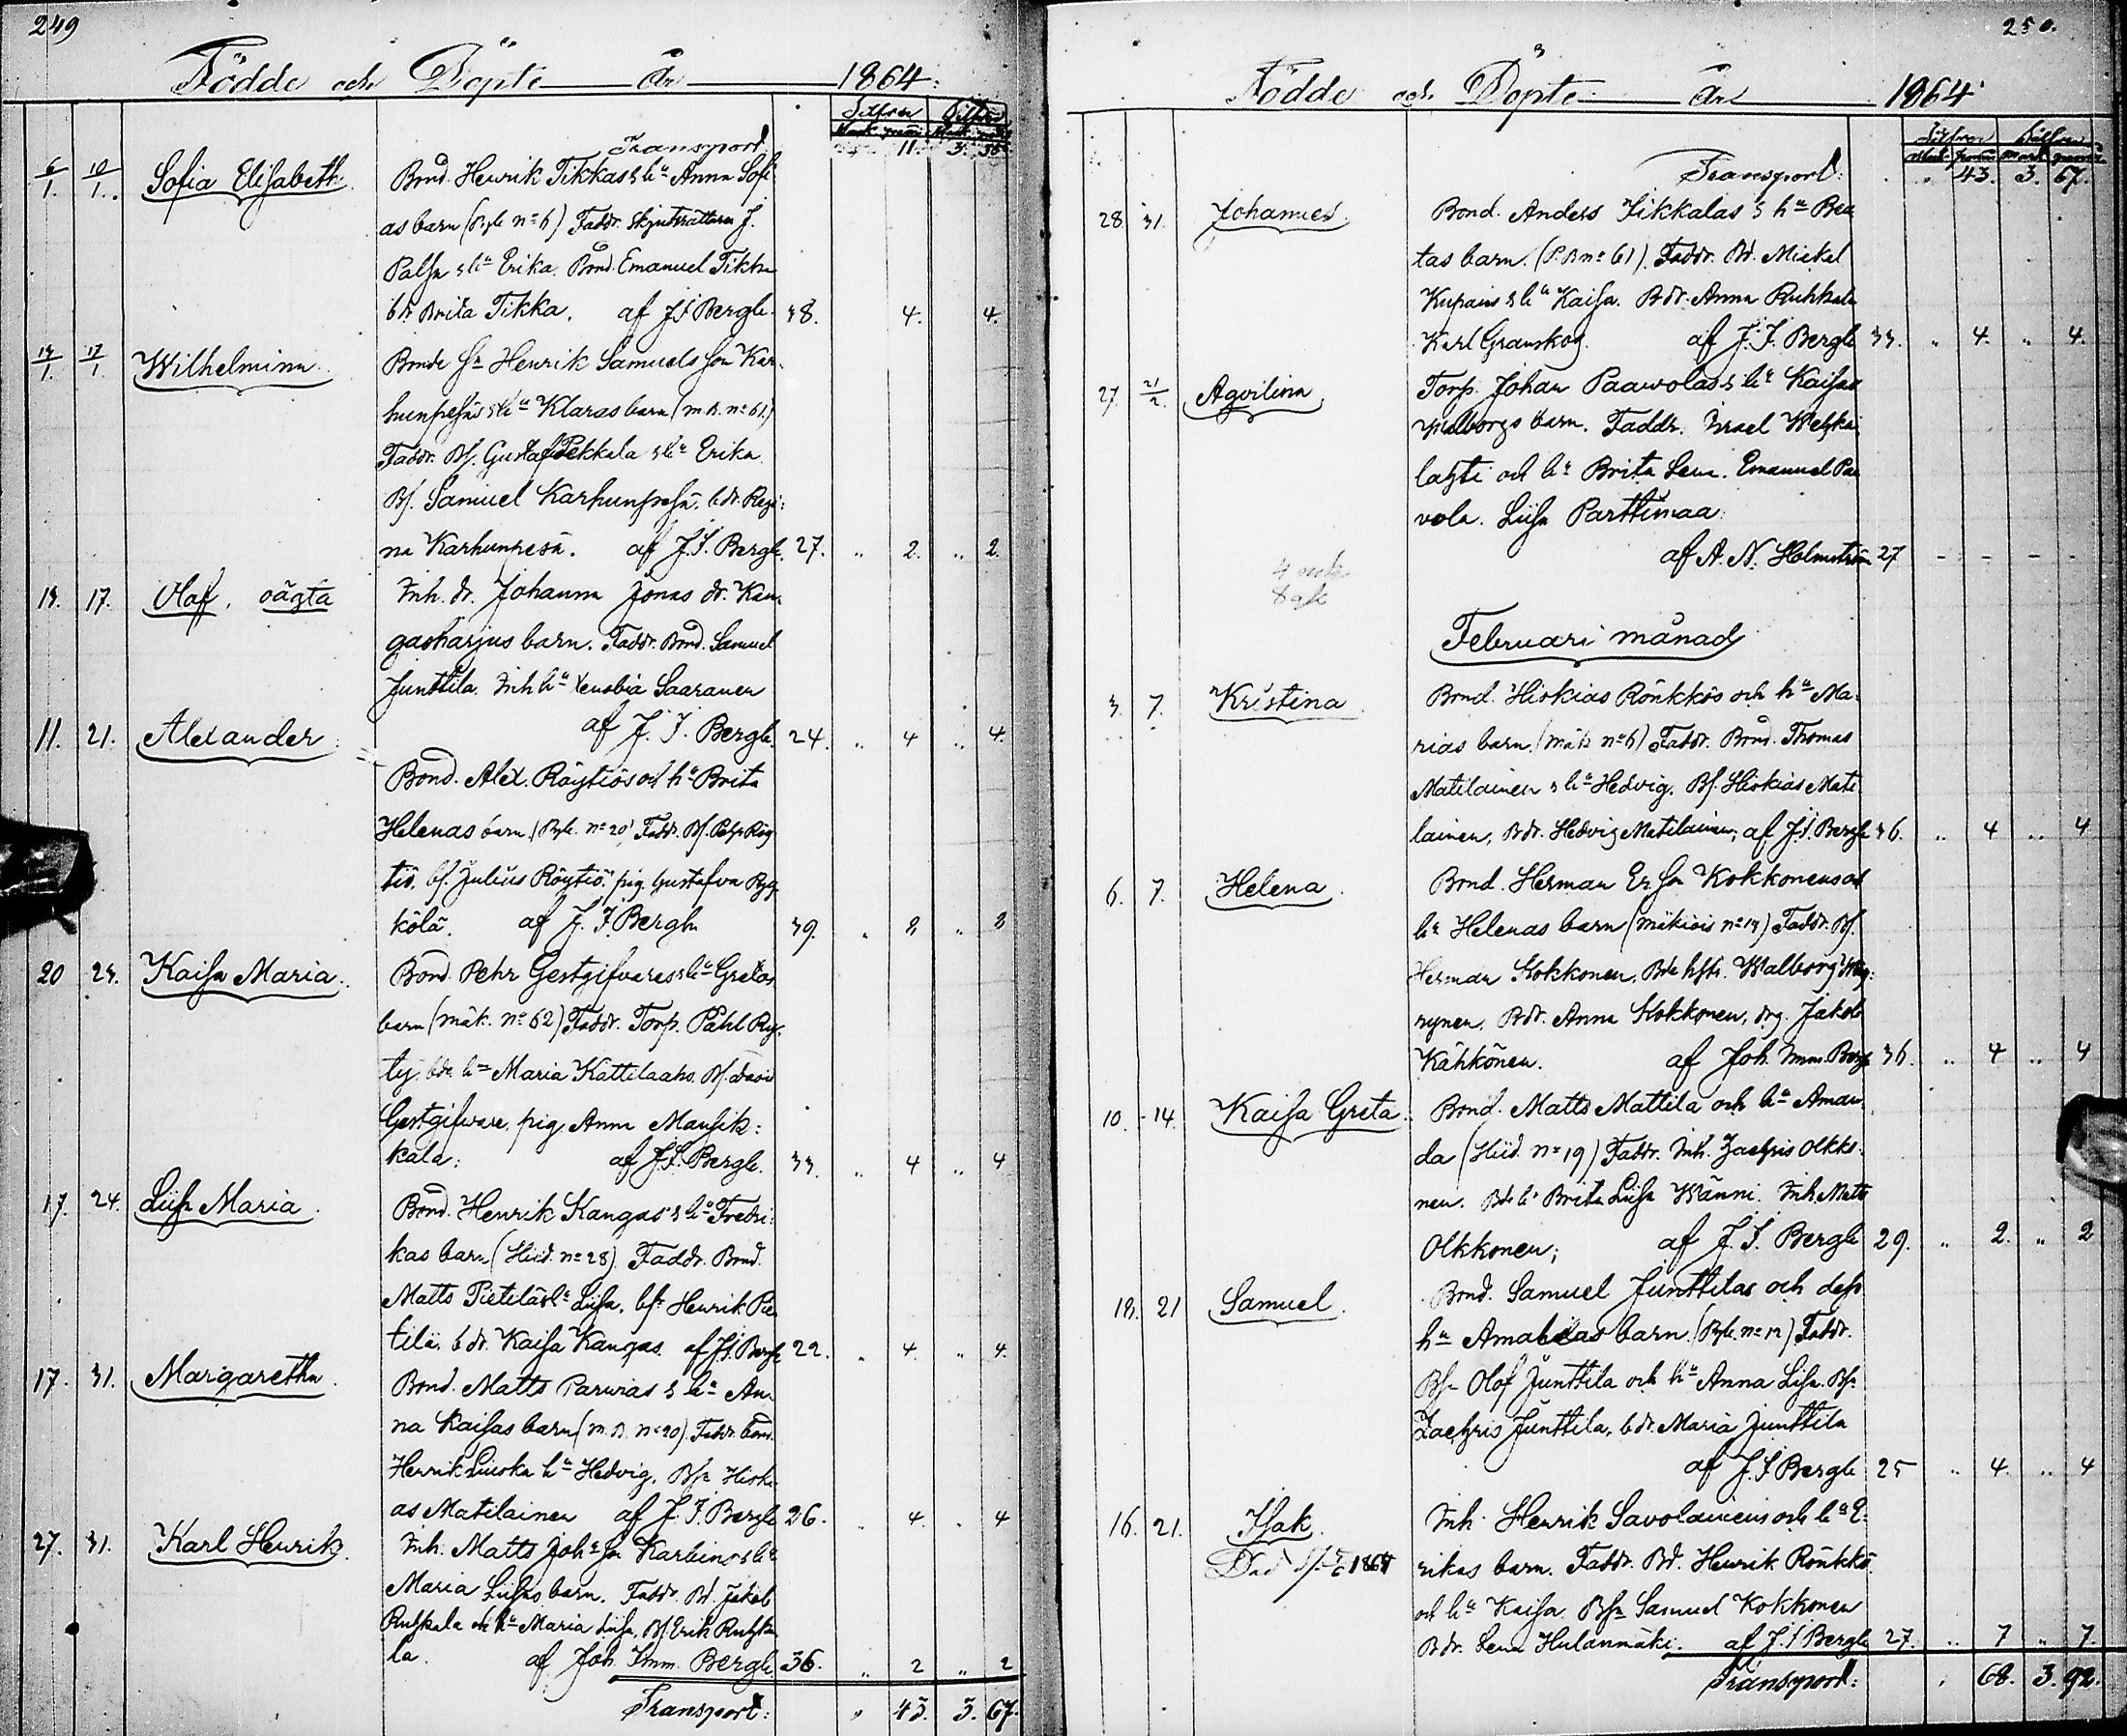 249
Födde och Döpte År 1864.
Silfver Silfver
Mark penni Mark penni
Transport 11. 3. 35
6/1. 10/1. Sofia Elisabeth. Bond. Henrik Tikkas & hu Anna Sofi
as barn (Byle no 6) Faddr. Skjutsrättarn J.
Palsa & hu Erika. Bond. Emanuel Tikka
bdr Brita Tikka. af J I Bergh. 38. 4. 4.
14/1. 17/1. Wilhelmina. Bonde sn Henrik Samuels son Kar
hunpesäs & hu Klaras barn (m.R. no 61.)
Faddr. Bs. Gustaf Pekkala & hu Erika.
Bs. Samuel Karhunpesä. bdr. Regi:
na Karhunpesä. af J.I. Bergh. 27. " 2. " 2.
13. 17. Olaf. oägta Inh. dr. Johanna Jonas dr. Kan
gasharjus barn. Faddr. Bond. Samuel
Junttila. Inh hu Xenobia Saaranen
11. 21. Alexander. af J. I. Bergh. 24. " 4 " 4.
Bond. Alex. Röytiös och hu Brita
Helenas barn (Byle. no 20) Faddr. Bs. Pehr Röy
tiö. bs. Julius Röytiö. pig. Gustafva Pyy
kölä. af J. I Bergh 39. " 2 " 2
20 24. Kaisa Maria. Bond. Pehr Gestgifvares & hu Gretas
barn (mäk. no 62) Faddr. Torp. Påhl Röy
ty. bde hu Maria Kattilaaho. Bs. David
Gestgifvare. pig. Anna Mansik:
kala: af J.I. Bergh. 33. " 4 " 4
17. 24. Liisa Maria. Bond. Henrik Kangas & hu Fredri:
kas barn (Hiid. no 28). Faddr. Bond.
Matts Pietilä & hu Liisa. bsn Henrik Pie
tilä. bdr. Kaisa Kangas. af J.I. Bergh 22. " 4. " 4.
17. 31. Margaretha. Bond. Matts Parwias & hu An
na Kaisas barn (m.R. no 20). Faddr. bond.
Henrik Luiska hu Hedvig. Bsn Hiski
as Matilainen af J. I. Bergh 26. " 4. " 4
27. 31. Karl Henrik. Inh. Matts Johns son Karbins & hu
Maria Liisas barn. Faddr. Bd. Jakob
Ruhkala och hu Maria Liisa. Bs. Erik Ruhka
la. af Joh. Imm. Bergh. 36. " 2 " 2
Transport: " 43. 3. 67.
250.
Födde och Döpte År 1864
Silfver Silfver
Mark penni Mark penni
Transport: " 43. 3. 67.
28. 31. Johannes. Bond. Anders Jikkalas & hu Bea
tas barn. (P.R no 61). Faddr. Bd. Mickel
Kupains & hu Kaisa. Bdr. Anna Ruhkala
Karl Granskog. af J. I. Bergh 33. " 4. " 4.
27. 21/2. Agvilina. Torp. Johan Paawolas & hu Kaisas
Walborgs barn. Faddr. Israel Wehka
lahti och hu Brita Lena. Emanuel Paa
vola. Liisa Parttimaa.
af A. N. Holmström 27 - - - -
4 mk
8 gk
Februari månad
3. 7. Kristina. Bond. Hiskias Rönkkös och hu Ma:
rias barn. (mäk no 6) Faddr. Bond. Thomas
Matilainen & hu Hedvig. Bs. Hiskias Mati
lainen, Bdr. Hedvig Matilainen; af J.I. Bergh 36. " 4 " 4
6. 7. Helena. Bond. Herman Er son Kokkonens och
hu Helenas barn (mäkiois no 14) Faddr. Bs.
Herman Kokkonen. Bde hstr. Walborg Väy:
rynen. Bdr. Anna Kokkonen, drg. Jakob
Kähkönen. af Joh. Imm. Bergh 36. " 4 " 4
10. 14. Kaisa Greta. Bond. Matts Mattila och hu Aman
da (Hiid. no 19) Faddr. Inh. Zachris Olkko:
nen. Bde hu Brita Liisa Wänni. Inh. Matts
Olkkonen; af J. I. Bergh 29. " 2. " 2
18. 21 Samuel. Bond. Samuel Junttilas och dess
hu Amalias barn. (Byle. no 12) Faddr.
Bsn Olof Junttila och hu Anna Lisa. Bsn
Zachris Junttila, bdr. Maria Junttila
af J. I Bergh 25 " 4. " 4
16. 21. Isak. Inh. Henrik Savolainens och hu E:
Död 1864 rikas barn. Faddr. Bd. Henrik Rönkkö
och hu Kaisa. Bsn Samuel Kokkonen
Bdr. Lena Hulanmäki. af J. I Bergh 27. " 7 " 7.
Transport: " 68. 3. 92.